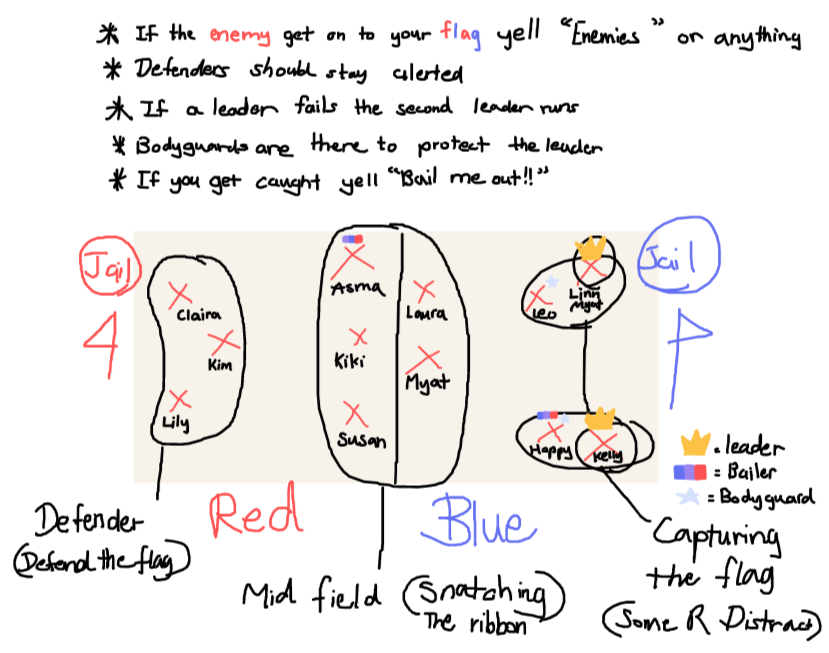 * If the enemy get on to your flag yell "Enemies" or anything
* Defenders should stay alerted
* If a leader fails the second leader runs
* Bodyguards are there to protect the leader
* If you get caught yell "Bail me out!!"
Jail
Jail
Asma
Linn
Myat
Leo
Claira
Laura
Kim
Kiki
Myat
Lily
Susan
Happy
Kelly
= leader
= Bailer
= Bodyguard
Red
Blue
Defender
(Defend the flag)
Mid field (Snatching
The ribbon)
Capturing
the flag
(Some R Distract)